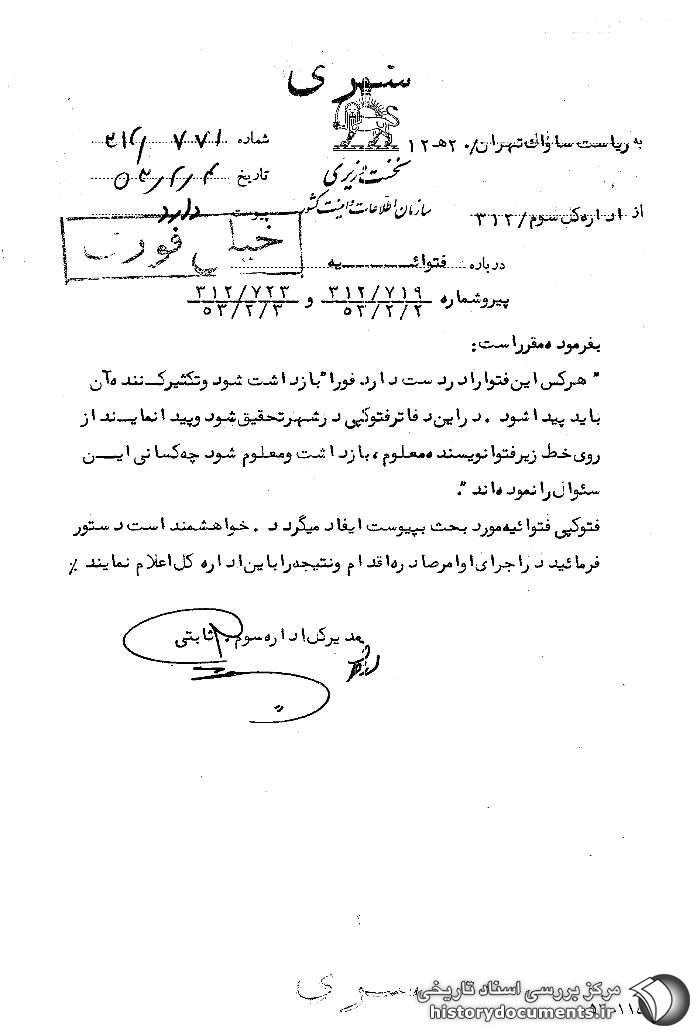 سری
به ریاست ساواک تهران/ ۲۰ هـ ۱۲
شماره ۳۱۲/۷۷۱
نخست وزیری
تاریخ ۵۳/۲/۴
سازمان اطلاعات و امنیت کشور
از اداره کل سوم/ ۳۱۲
پیوست دارد
خیلی فوری
درباره فتوائـــــیه
پیرو شماره ۳۱۲/۷۱۹ و ۳۱۲/۷۲۳
۵۳/۲/۲ ۵۳/۲/۳
بفرموده مقرر است:
"هرکس این فتوا را در دست دارد فورا" بازداشت شود و تکثیر کننده آن
باید پیدا شود . در این دفاتر فتوکپی در شهر تحقیق شود و پیدا نمایند از
روی خط زیر فتوا نویسنده معلوم ، بازداشت و معلوم شود چه کسانی ایـــن
سئوال را نموده اند ".
فتوکپی فتوائیه مورد بحث بپیوست ایفاد میگردد . خواهشمند است دستور
فرمائید در اجرای اوامر صادره اقدام و نتیجه را باین اداره کل اعلام نمایند ٪
مدیرکل اداره سوم . ثابتی
سری
مرکز بررسی اسناد تاریخی
historydocuments.ir